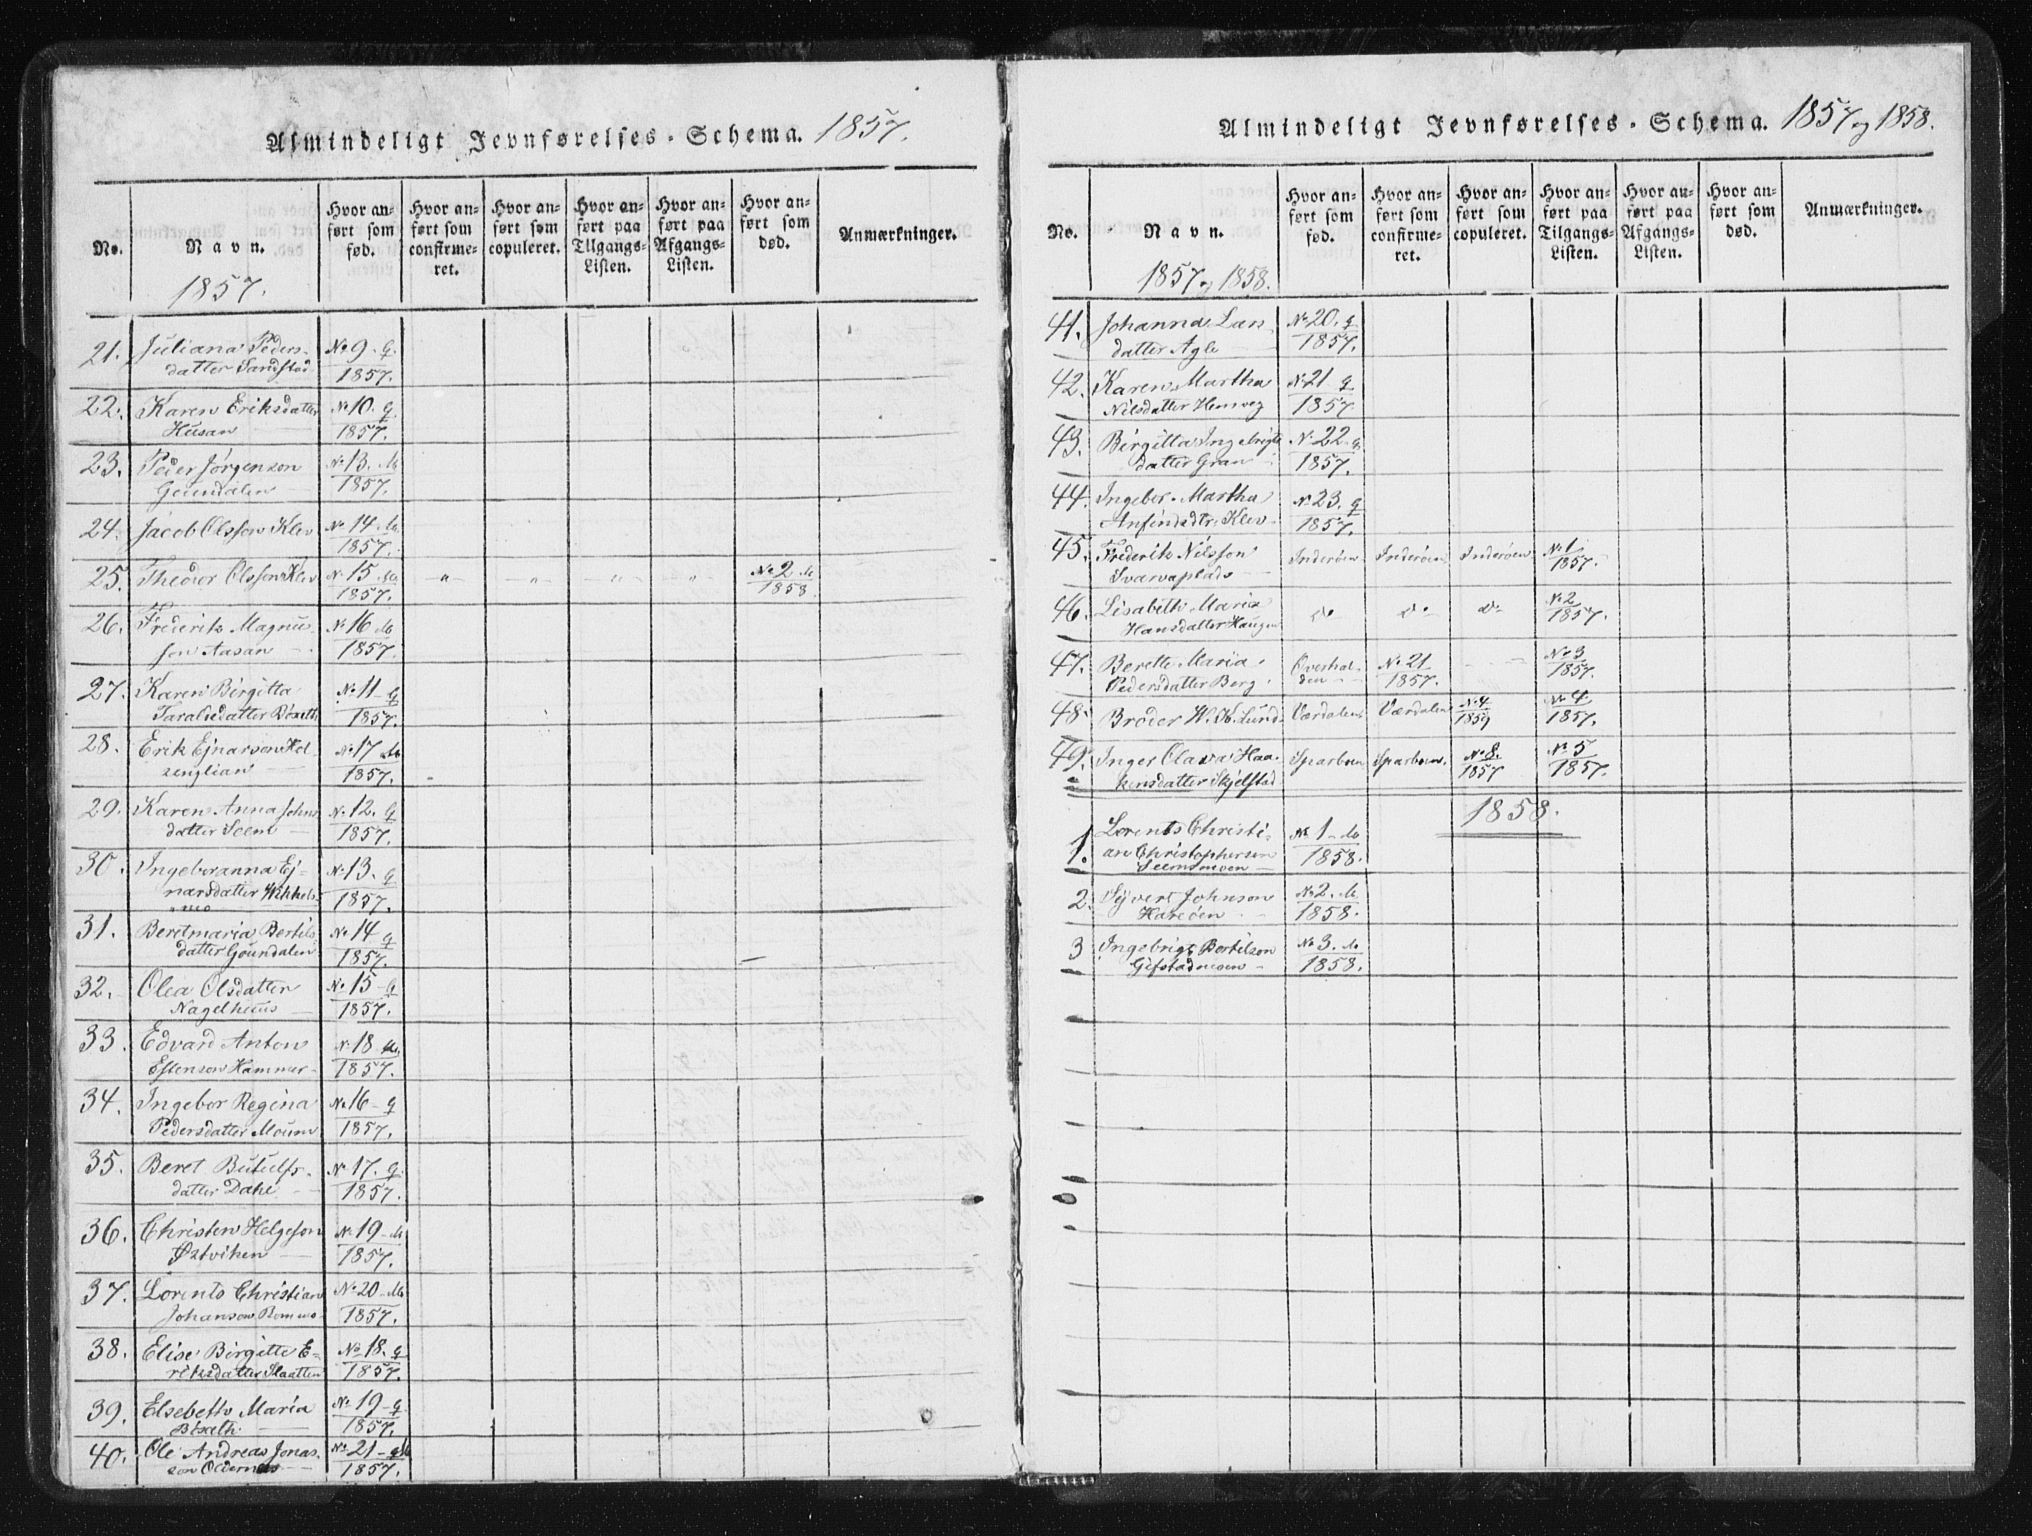 Almindeligt Jevnførelses-Schema. 1857.
No. Navn. Hvor anført som fød. Hvor anført som confirmeret. Hvor anført som copuleret. Hvor anført paa Tilgangs-Listen. Hvor anført paa Afgangs-Listen. Hvor anført som død. Anmærkninger.
1857.
21. Juliana Peders- No 9-Q
datter Sandstad 1857.
22. Karen Eriksdatter No 10. Q
Husan 1857.
23. Peder Jörgenson No 13. M
1857.
24. Jacob Olsson Klev No 14 M
1857.
25. Theodor Olsson Klev No 15 M - " - - " - - " - - " - No 2 M
1857. 1858
26. Frederik Magnu- No 16 M
son Aasan 1857.
27. Karen Birgitta No 11-Q
1857.
28. Erik Ejnarson Hel- No 17 M
1857.
29. Karen Anna Johns No 12. Q
datter Seem 1857.
30. Ingeboranna Ej- No 13. Q
narsdatter 1857.
31. Beretmaria Bertils No 14 Q
datter Gaundalen 1857.
32. Olea Olsdatter No 15-Q
Nagelhuus 1857.
33. Edvard Anton No 18 M
Estenson Hammer 1857.
34. Ingebor Regina No 16-Q
Pedersdatter Moum 1857.
35. Beret Butulfs- No 17. Q
datter Dahl 1857.
36. Christen Helgeson No 19-M
Østviken 1857.
37. Lorents Christian No 20-M
Johanson 1857.
38. Elise Birgitte E- No 18. Q
riksdatter Slaatten 1857.
39. Elsebeth Maria No 19-Q
1857.
40. Ole Andreas Jonas- No 21- M
son Oldernes 1857.
Almindeligt Jevnførelses-Schema. 1857 og 1858.
No. Navn. Hvor anført som fød. Hvor anført som confirmeret. Hvor anført som copuleret. Hvor anført paa Tilgangs-Listen. Hvor anført paa Afgangs-Listen. Hvor anført som død. Anmærkninger.
1857 og 1858.
41. Johanna Lars- No 20. Q
datter Agle 1857.
42. Karen Martha No 21 Q
Nilsdatter 1857
43. Birgitta Ingebrigts No 22. Q
datter Gran 1857.
44. Ingebor Martha No 23. Q
Anfindsdtr. Klev 1857.
45. Frederik Nilsson Inderøen Inderøen Inderøen No 1
Svarvaplads 1857.
46. Lisabeth Maria do do do No 2
Hansdatter Haugen 1857.
47. Berette Maria Overhal- No 21 - - - No 3
Pedersdatter Berg. den 1857. 1857.
48. Broder W. K. Lund Værdalen Værdalen No 4 No 4
1859 1857.
49. Inger Olava Haa- Sparboen Sparboen No 8. No 5
kensdatter Skjelstad 1857 1857.
1858.
1. Lorents Christi- No 1-M
an Christophersen 1858.
Seemsmoen
2. Syvert Johnson No 2. M
Hareøen 1858.
3 Ingebrigt Bertilson No 3. M
Gifstadmoen 1858.